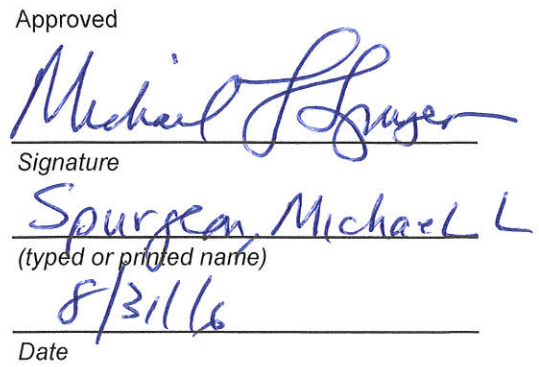 Approved
Michael L Spurgeon
Signature
Spurgeon, Michael L
(typed or printed name)
8/31/16
Date